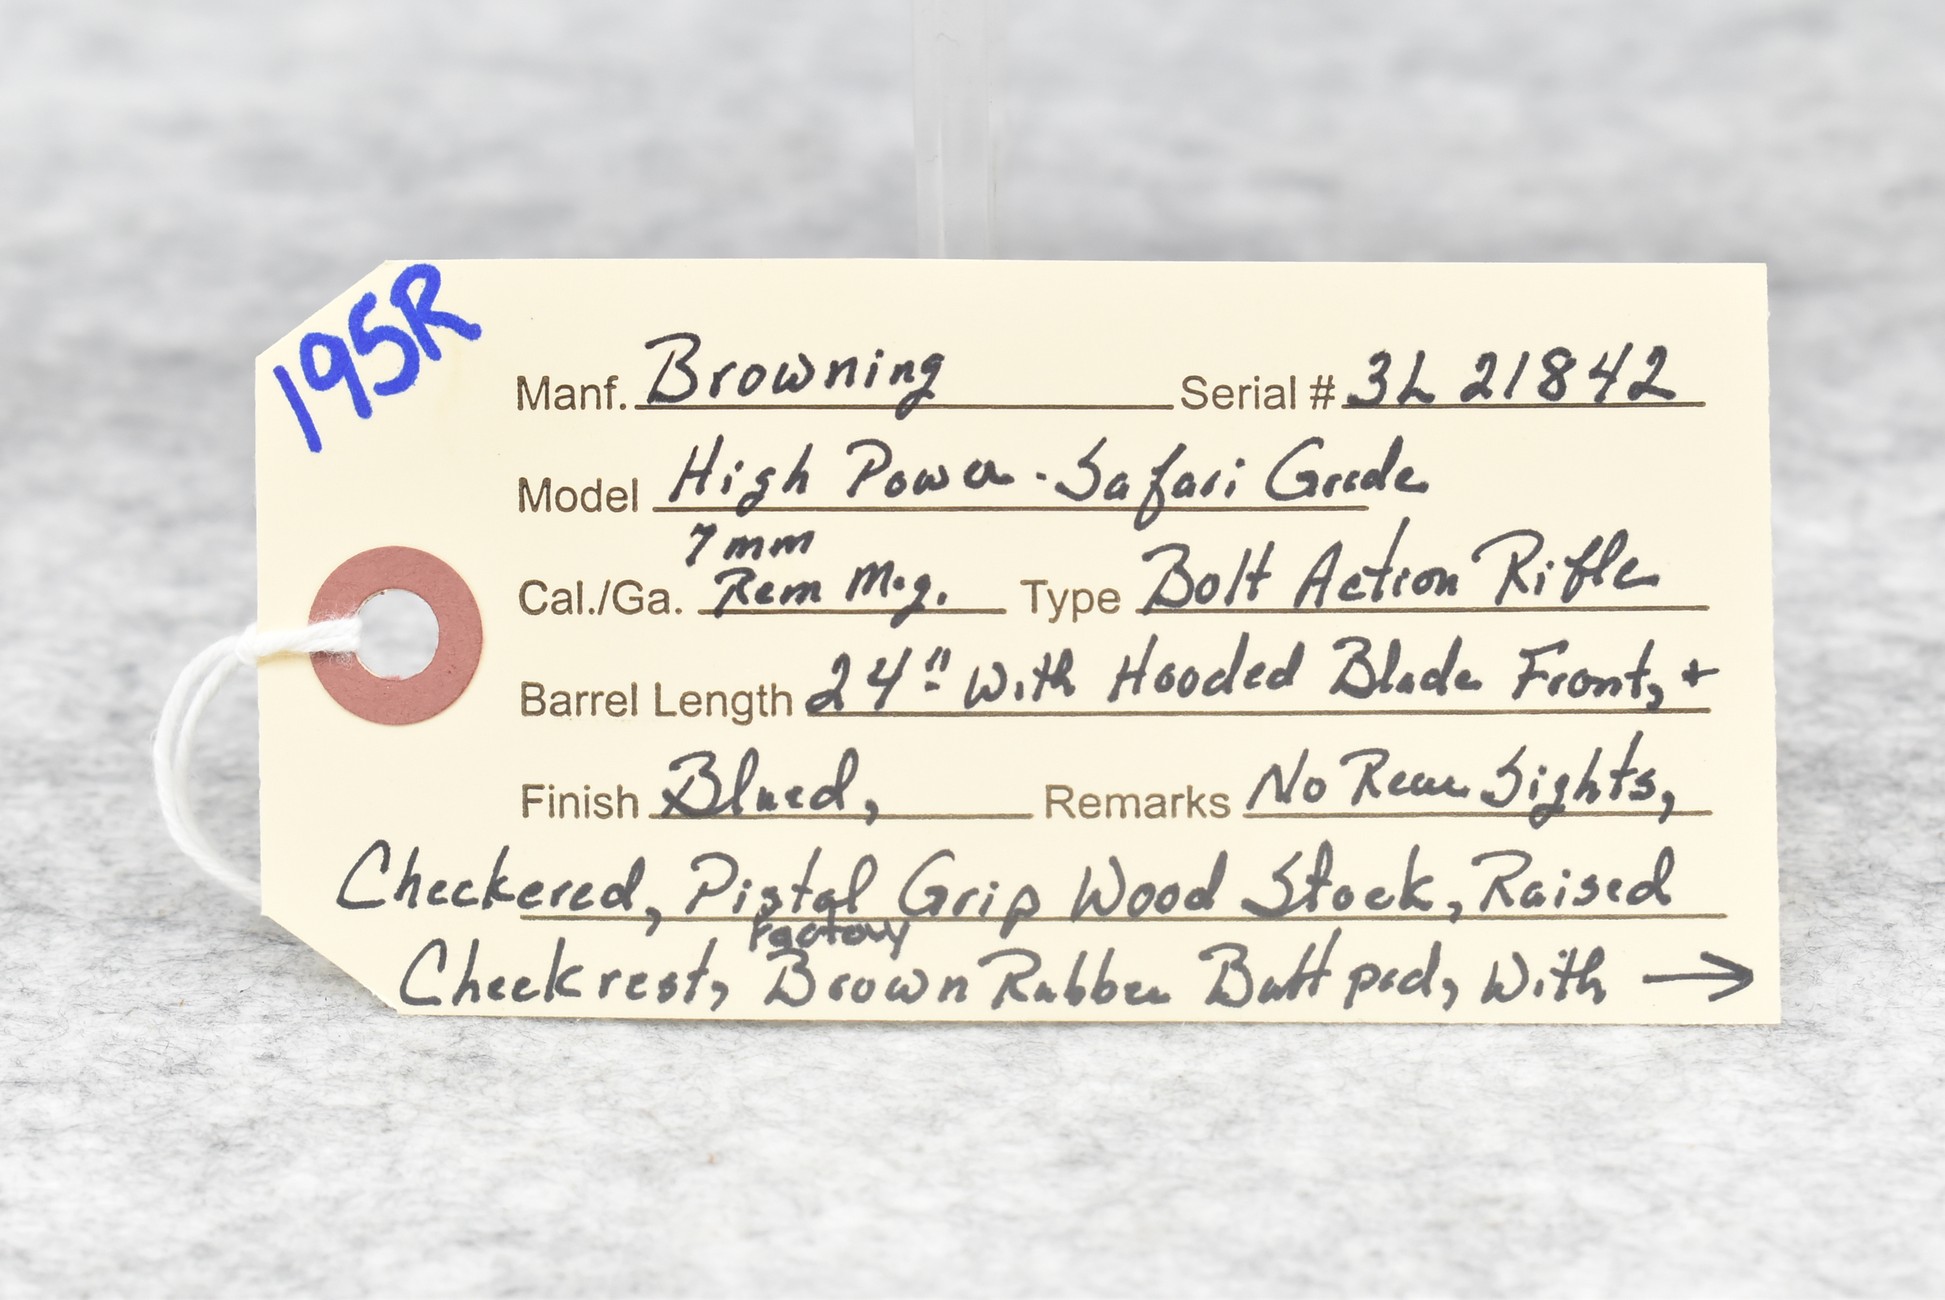 195R
Manf. Browning Serial # 3L 21842
Model High Power - Safari Grade
7mm
Cal./Ga. Rem Mag. Type Bolt Action Rifle
Barrel Length 24" with Hooded Blade Front, +
Finish Blued, Remarks No Rear Sights,
Checkered, Pistal Grip Wood Stock, Raised
Factory
Cheekrest, Brown Rubber Butt pad, with →